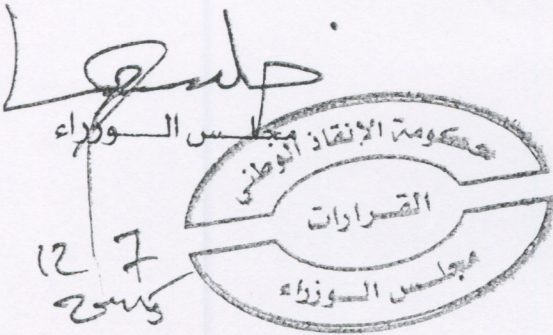 مجلس الوزراء
حكومة الإنقاذ الوطني
القرارات
مجلس الوزراء
12 7